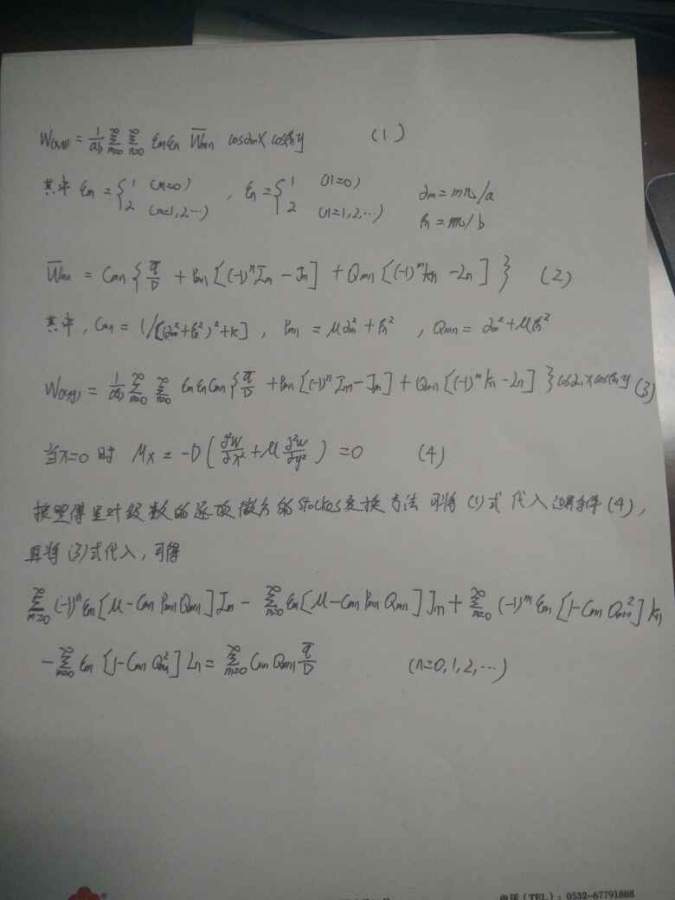 W(x,y) = 1/ab ∑_{m=0}^{∞} ∑_{n=0}^{∞} εm εn W̅mn cosαmx cosβny (1)
其中 εm = { 1 (m=0) 2 (m=1,2…) , εn = { 1 (n=0) 2 (n=1,2,…) αm = mπ/a βn = nπ/b
W̅mn = Cmn { q̅/D + Pmn [(-1)^m Im - Jn] + Qmn [(-1)^m kn - Ln] } (2)
其中, Cmn = 1/[(αm²+βn²)²+k] , Pmn = μαm²+βn² , Qmn = αm²+μβn²
W(x,y) = 1/ab ∑_{m=0}^{∞} ∑_{n=0}^{∞} εm εn Cmn { q̅/D + Pmn [(-1)^n Im - Jm] + Qmn [(-1)^m kn - Ln] } cosαmx cosβny (3)
当x=0 时 Mx = -D ( ∂²W/∂x² + μ ∂²W/∂y² ) = 0 (4)
按照傅里叶级数的逐项微分的Stockes变换方法 可将 (1) 式 代入边界条件 (4),
再将 (3) 式代入, 可得
∑_{m=0}^{∞} (-1)^n εm [μ - Cmn Pmn Qmn] Im - ∑_{m=0}^{∞} εm [μ - Cmn Pmn Qmn] Jm + ∑_{m=0}^{∞} (-1)^m εm [1 - Cmn Qmn²] kn
- ∑_{m=0}^{∞} εm [1 - Cmn Qmn²] Ln = ∑_{m=0}^{∞} Cmn Qmn q̅/D (n=0,1,2,…)
电话(TEL): 0532-67791888